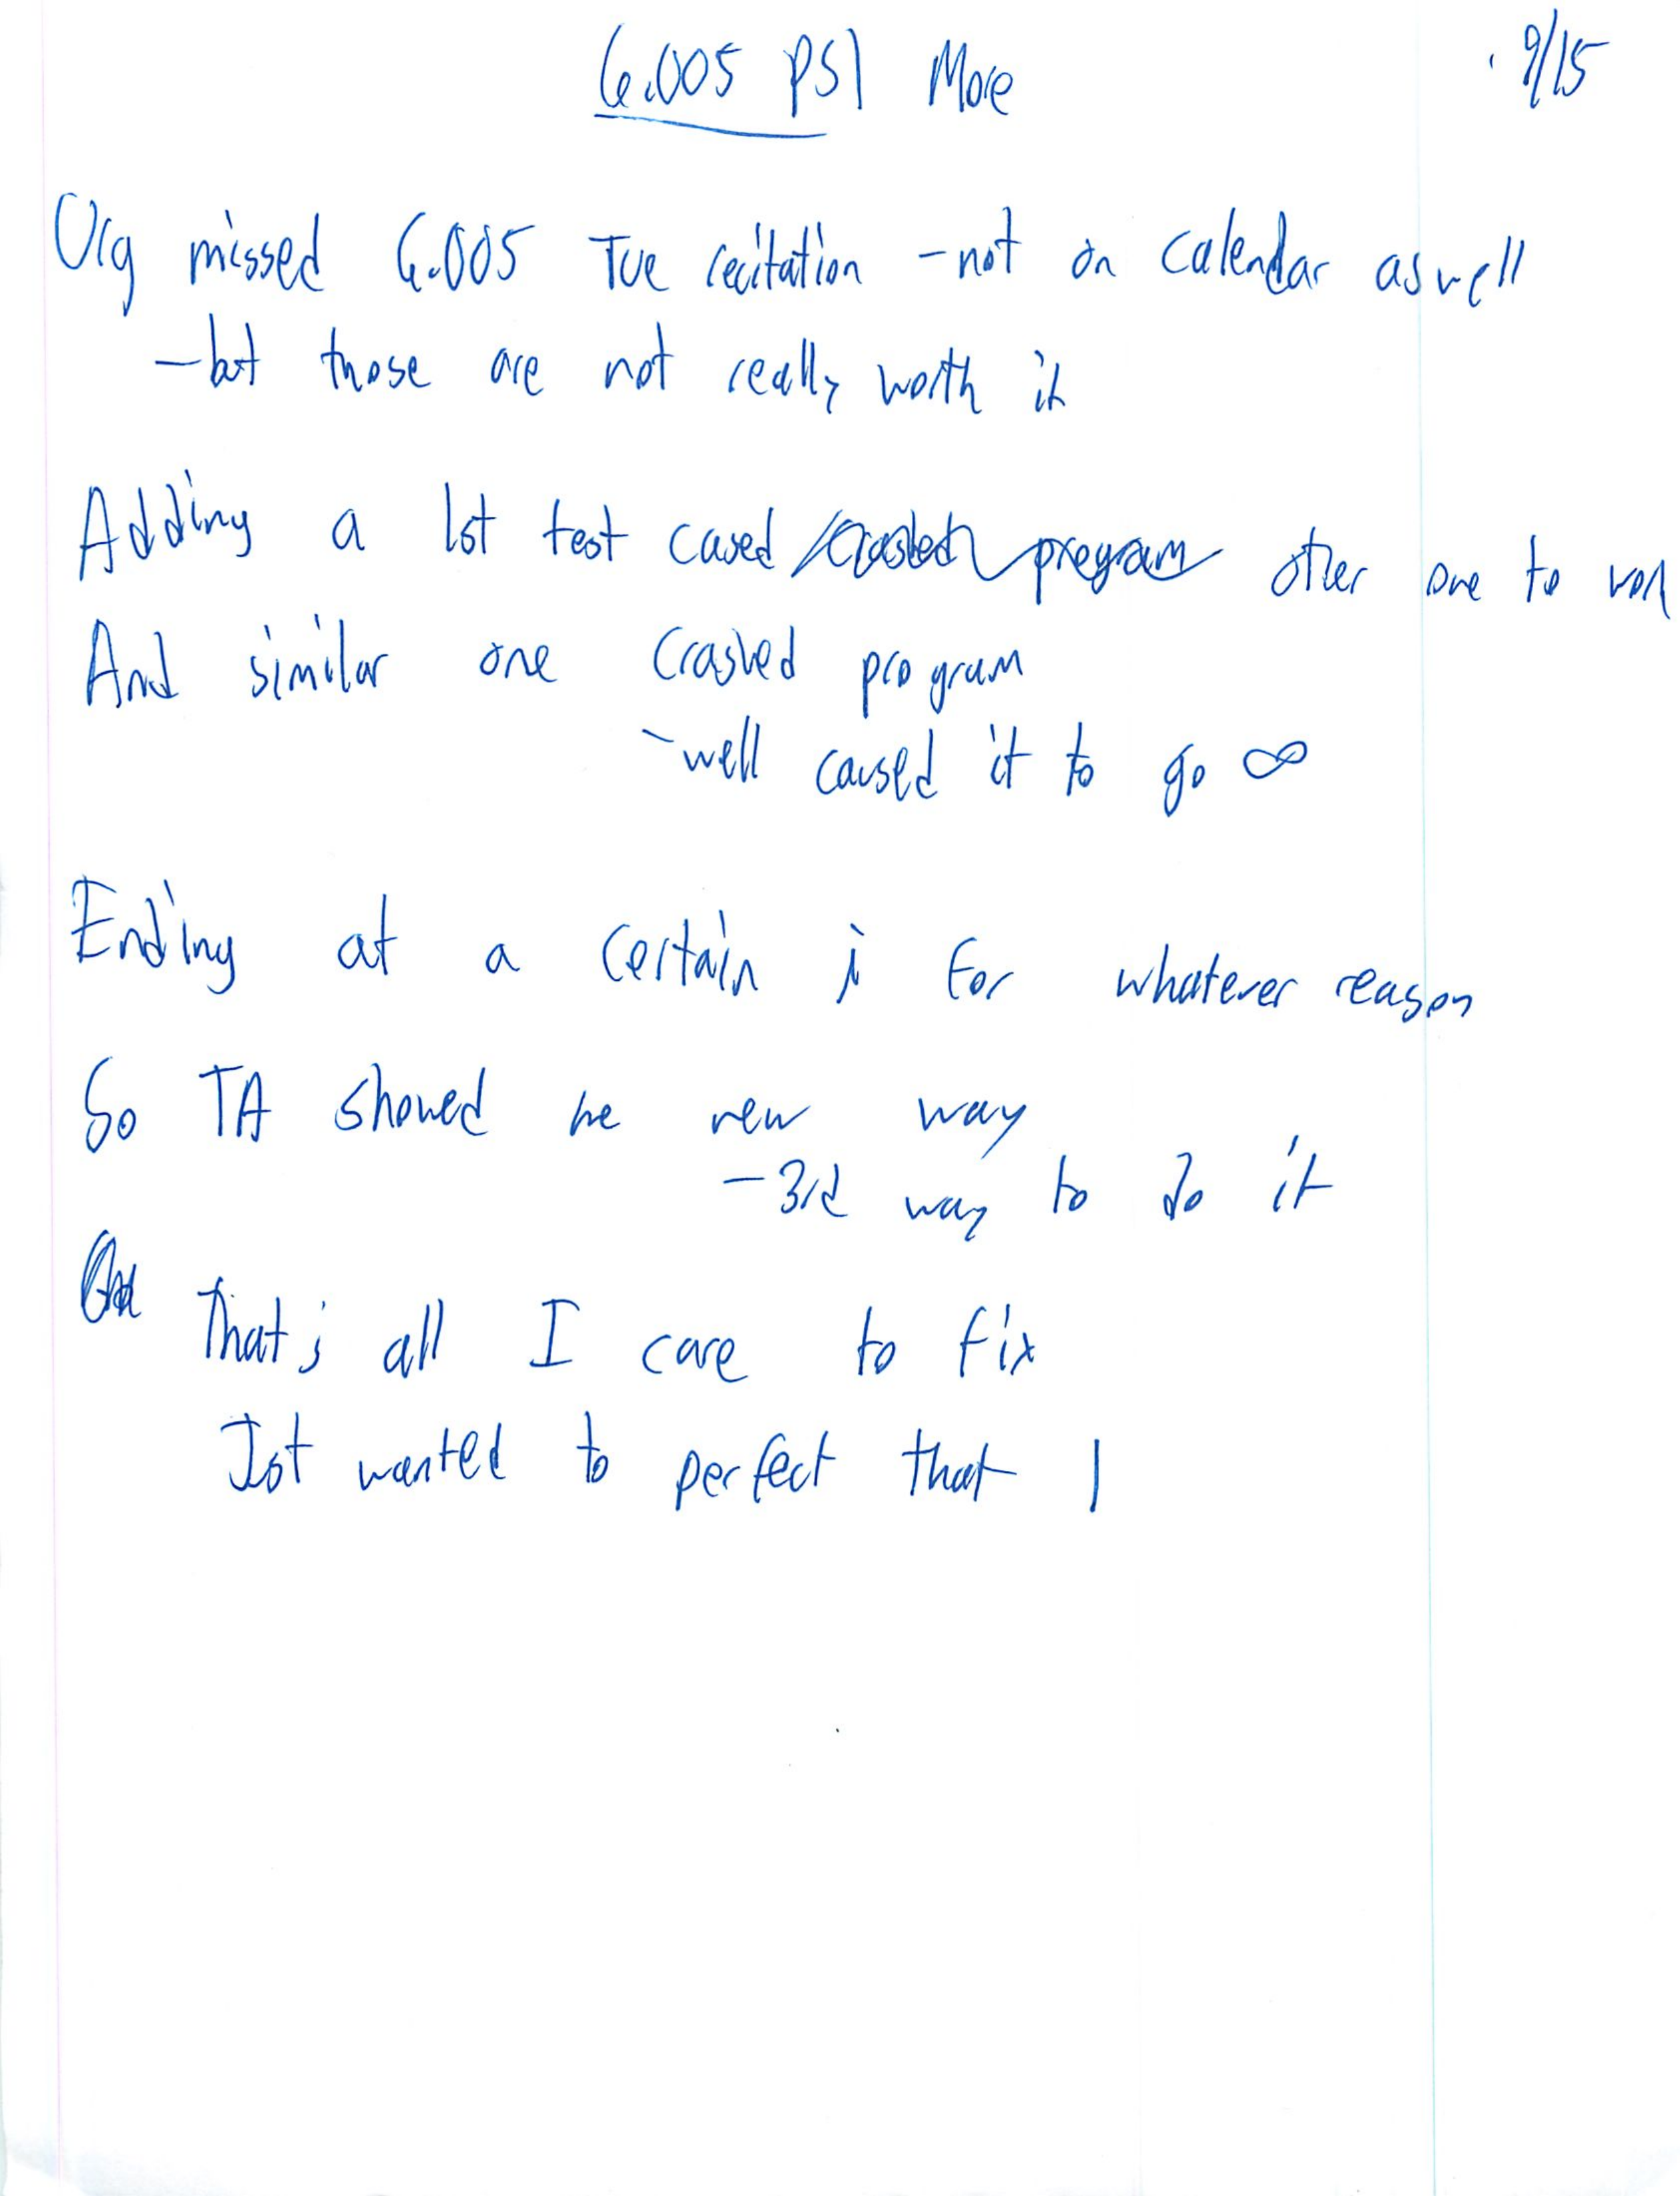 6.005 PS1 More 9/15
Orig missed 6.005 Tue recitation - not on calendar as well
- but those are not really worth it
Adding a 1st test caused crashed program other one to work
And similar one crashed program
- well caused it to go ∞
Ending at a certain i for whatever reason
So TA showed me new way
- 3rd way to do it
That's all I care to fix
Just wanted to perfect that 1